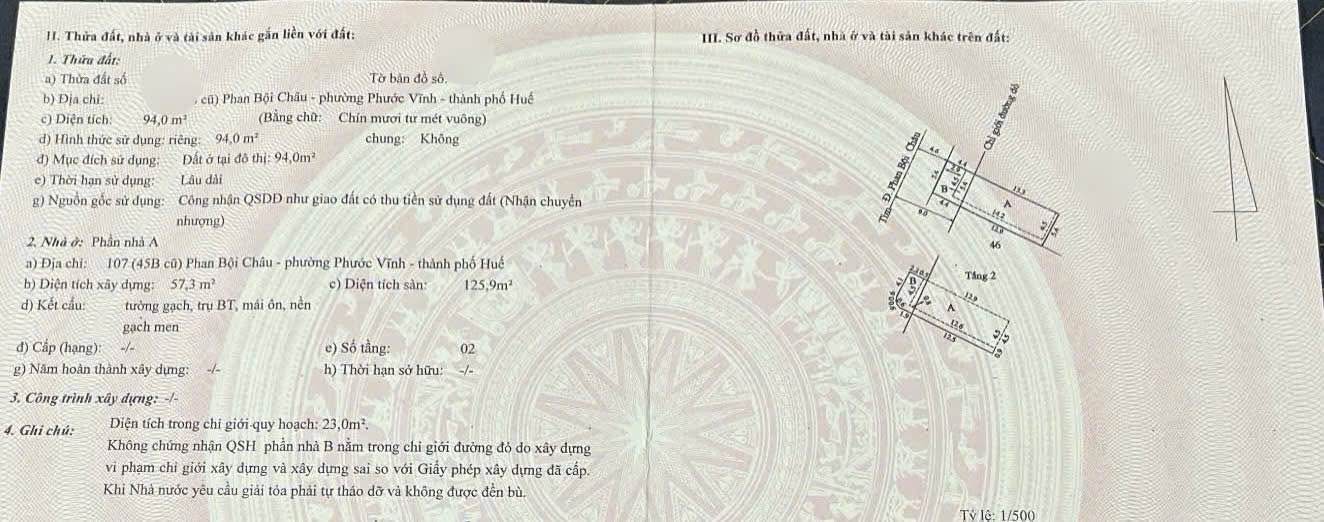 II. Thửa đất, nhà ở và tài sản khác gắn liền với đất:
1. Thửa đất:
a) Thửa đất số
Tờ bản đồ số.
b) Địa chỉ:
cũ) Phan Bội Châu - phường Phước Vĩnh - thành phố Huế
c) Diện tích: 94,0 m²
(Bằng chữ: Chín mươi tư mét vuông)
d) Hình thức sử dụng: riêng: 94,0 m²
chung: Không
đ) Mục đích sử dụng: Đất ở tại đô thị: 94,0m²
e) Thời hạn sử dụng: Lâu dài
g) Nguồn gốc sử dụng: Công nhận QSDĐ như giao đất có thu tiền sử dụng đất (Nhận chuyển
nhượng)
2. Nhà ở: Phần nhà A
a) Địa chỉ: 107 (45B cũ) Phan Bội Châu - phường Phước Vĩnh - thành phố Huế
b) Diện tích xây dựng: 57,3 m²
c) Diện tích sàn: 125,9m²
d) Kết cấu: tường gạch, trụ BT, mái ôn, nền
gạch men
đ) Cấp (hạng): -/-
e) Số tầng: 02
g) Năm hoàn thành xây dựng: -/-
h) Thời hạn sở hữu: -/-
3. Công trình xây dựng: -/-
4. Ghi chú: Diện tích trong chỉ giới quy hoạch: 23,0m².
Không chứng nhận QSH phần nhà B nằm trong chỉ giới đường đỏ do xây dựng
vi phạm chỉ giới xây dựng và xây dựng sai so với Giấy phép xây dựng đã cấp.
Khi Nhà nước yêu cầu giải tỏa phải tự tháo dỡ và không được đền bù.
III. Sơ đồ thửa đất, nhà ở và tài sản khác trên đất:
Chỉ giới đường đỏ
Tim Đ. Phan Bội Châu
4.6
4.4
B
A
13.3
4.4
9.0
14.2
12.9
4.5
5.4
46
Tầng 2
B
A
12.9
12.6
12.5
4.5
4.5
0.9
1.9
Tỷ lệ: 1/500